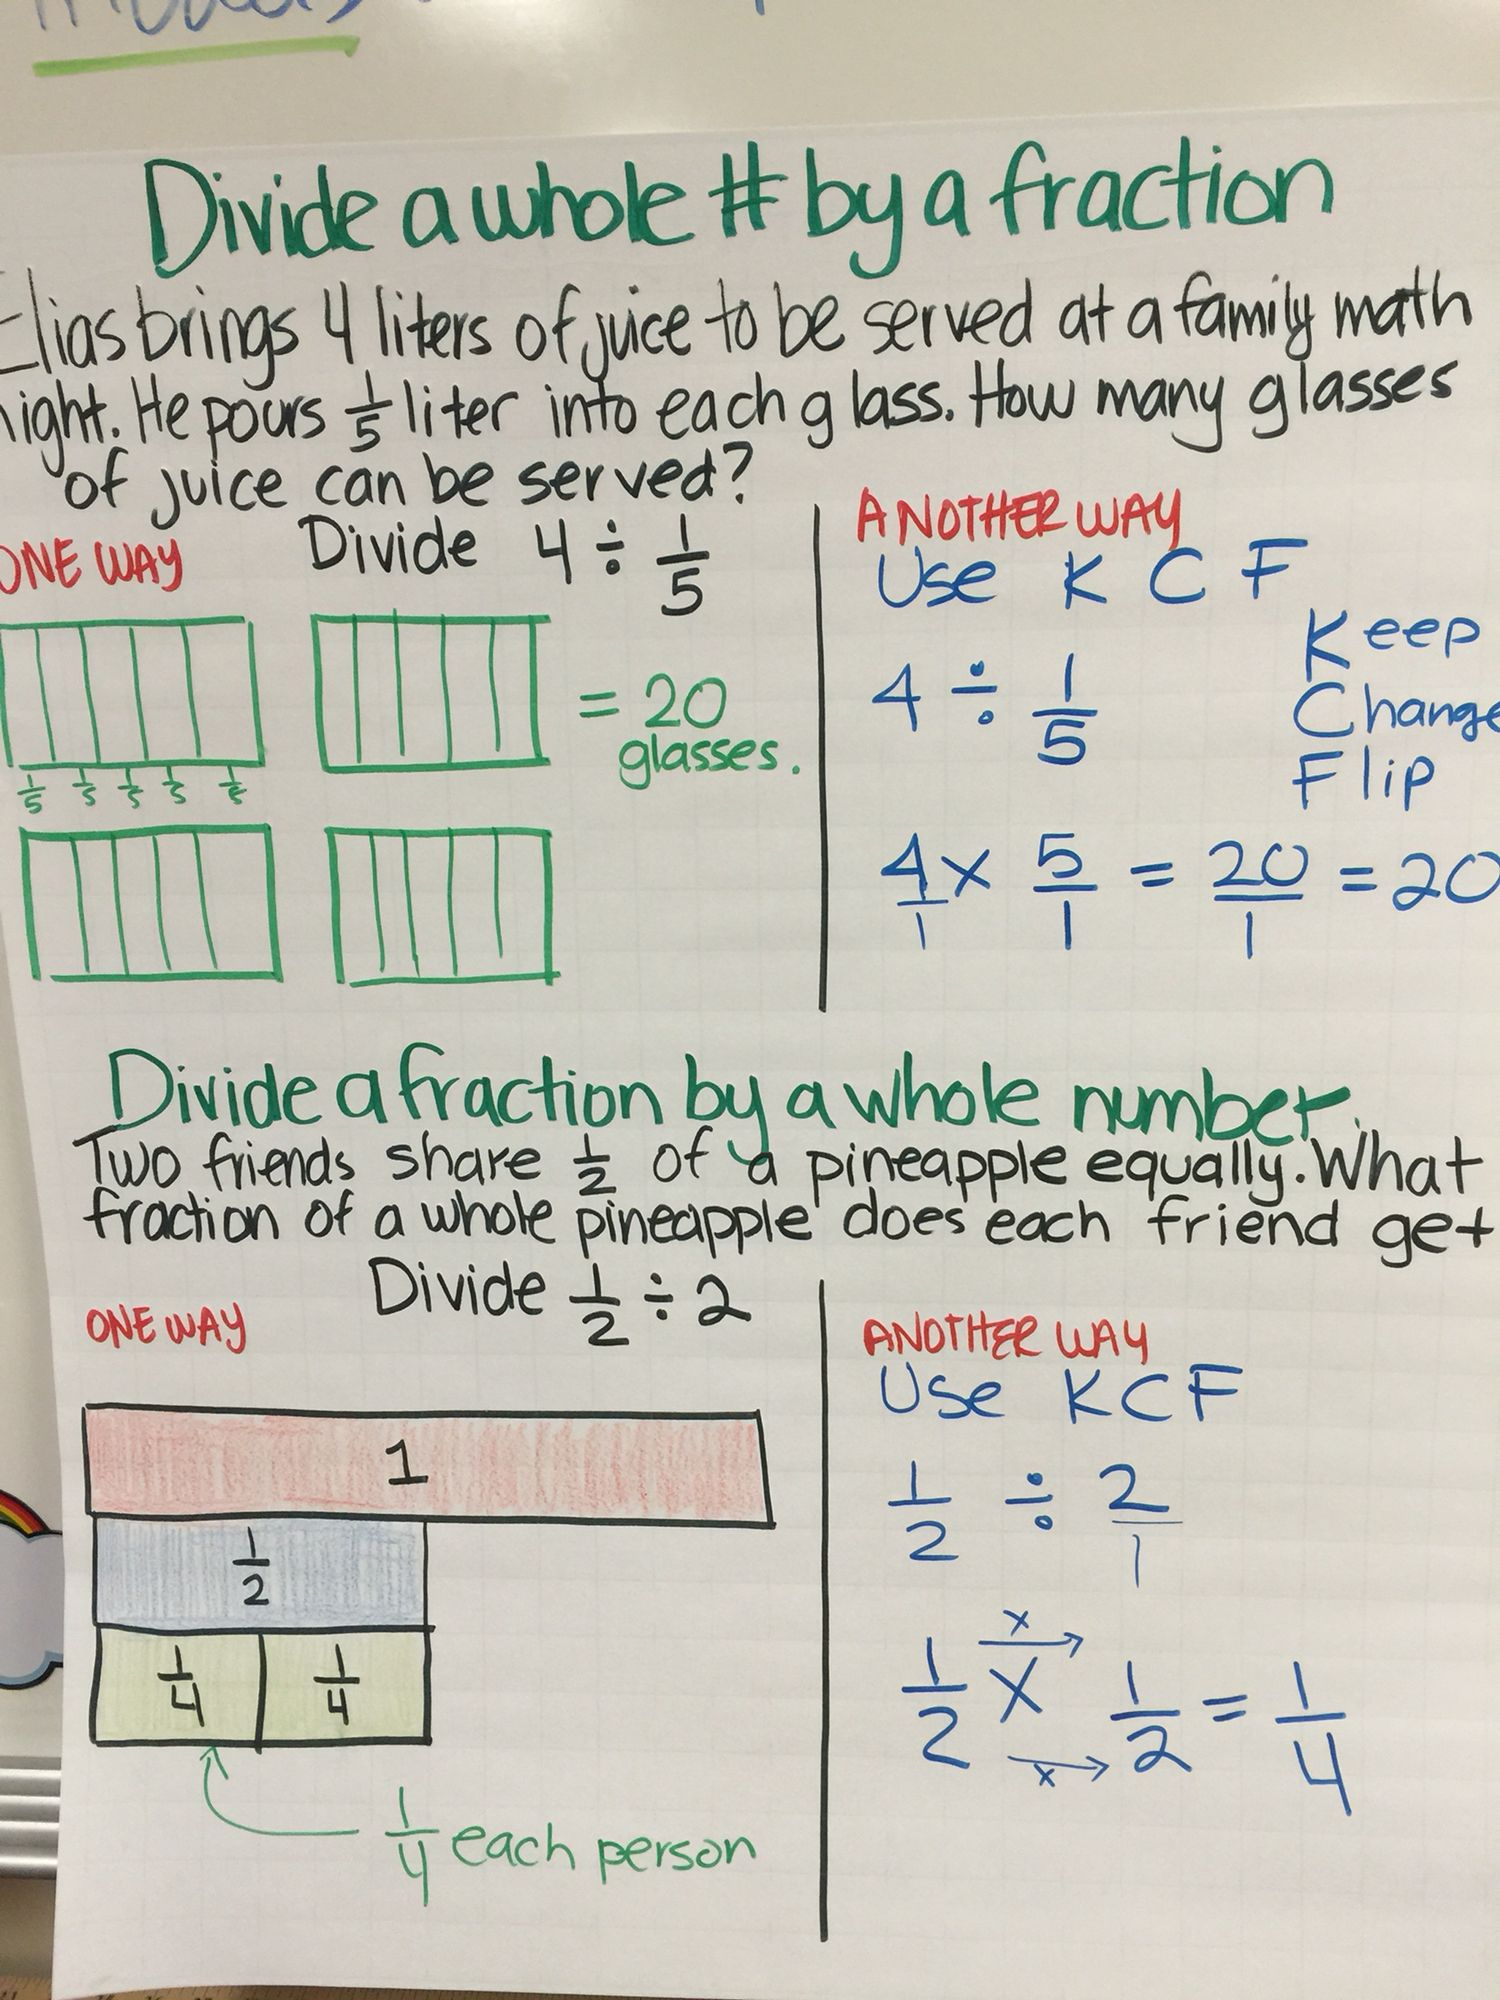 Divide a whole # by a fraction
Elias brings 4 liters of juice to be served at a family math
night. He pours 1/5 liter into each glass. How many glasses
of juice can be served?
ONE WAY
Divide 4 ÷ 1/5
= 20
glasses.
1/5 1/5 1/5 1/5 1/5
ANOTHER WAY
Use K C F
Keep
Change
Flip
4 ÷ 1/5
4/1 x 5/1 = 20/1 = 20
Divide a fraction by a whole number.
Two friends share 1/2 of a pineapple equally. What
fraction of a whole pineapple does each friend get
Divide 1/2 ÷ 2
ONE WAY
1
1/2
1/4 1/4
1/4 each person
ANOTHER WAY
Use KCF
1/2 ÷ 2/1
x
1/2 X 1/2 = 1/4
x